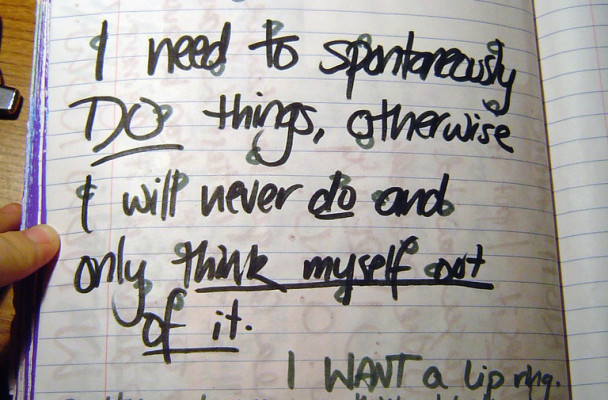 I need to spontaneously
DO things, otherwise
I will never do and
only think myself out
of it.
I WANT a lip ring.